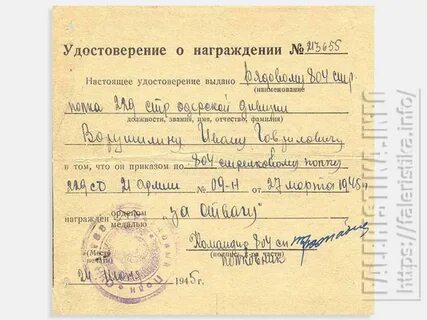 Удостоверение о награждении № 213655
Настоящее удостоверение выдано рядовому 804 стр.
(наименование
полка 229 стр одерской дивизии
должности, звания, имя, отчество, фамилия)
Ворушилину Ивану Гавриловичу
в том, что он приказом по 804 стрелковому полку
229 сд 21 армии № 09-н от „ 27 " марта 1945 г
награжден орденом
медалью „за отвагу"
Командир 804 сп
(подпись, в-части)
полковник
(Место
печати)
24 июня 1945 г.
FALERISTIKA.INFO
https://faleristika.info/